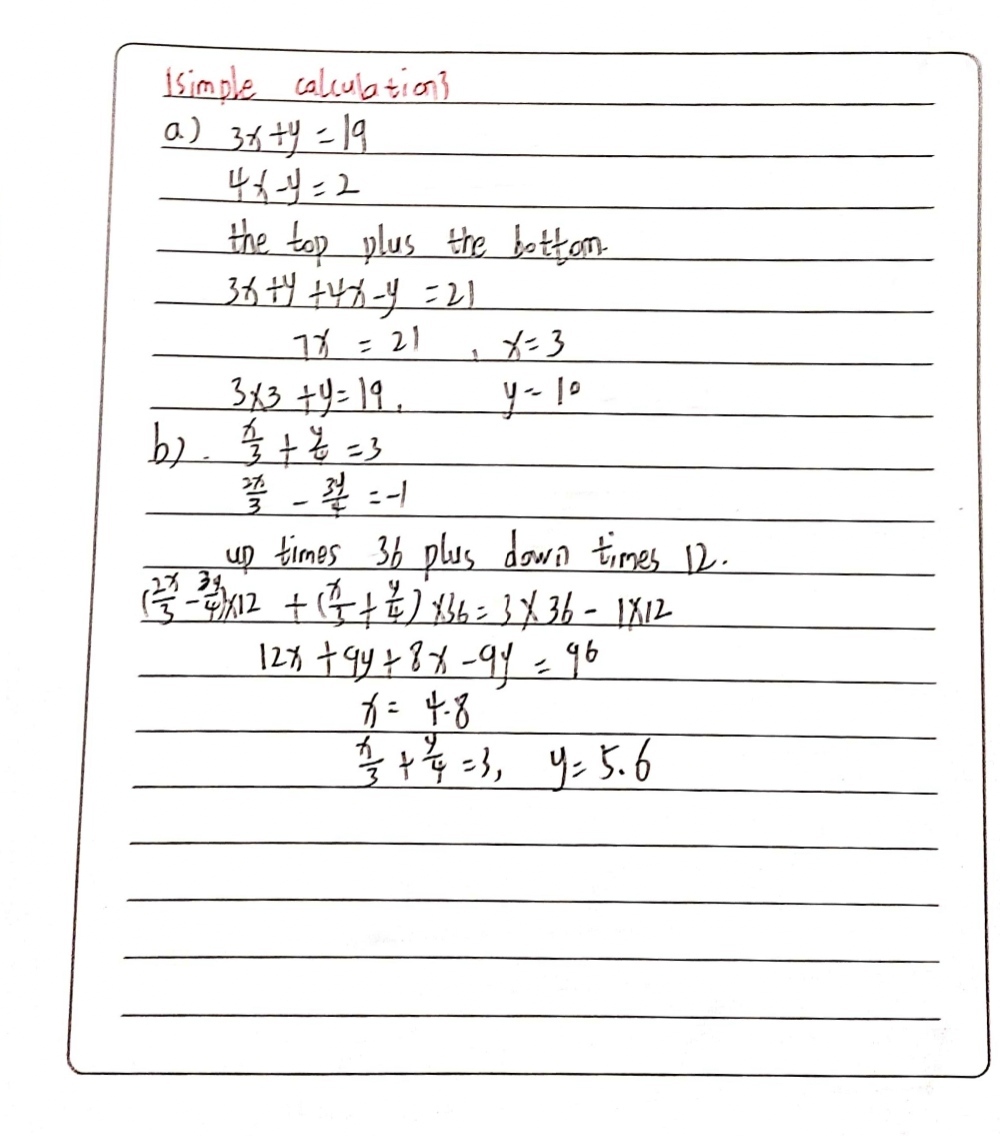 1simple calculations
a) 3x+y=19
4x-y=2
the top plus the bottom
3x+y+4x-y=21
7x=21, x=3
3×3+y=19, y=10
b). x/3+y/4=3
2x/3-3y/4=-1
up times 36 plus down times 12.
(2x/3-3y/4)×12+(x/3+y/4)×36=3×36-1×12
12x+9y+8x-9y=96
x=4.8
x/3+y/4=3, y=5.6